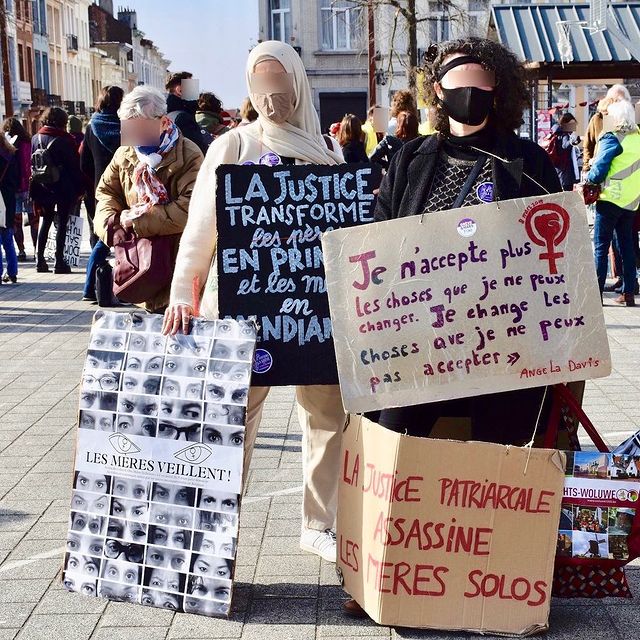 LA JUSTICE
TRANSFORME
les
EN
et les
en
Je n'accepte plus
les choses que je ne peux
changer. Je change les
choses que je ne peux
pas accepter »
ANGELA DAVIS
LES MÈRES VEILLENT !
LA JUSTICE PATRIARCALE
ASSASSINE
LES MERES SOLOS
HTS-WOLUWE